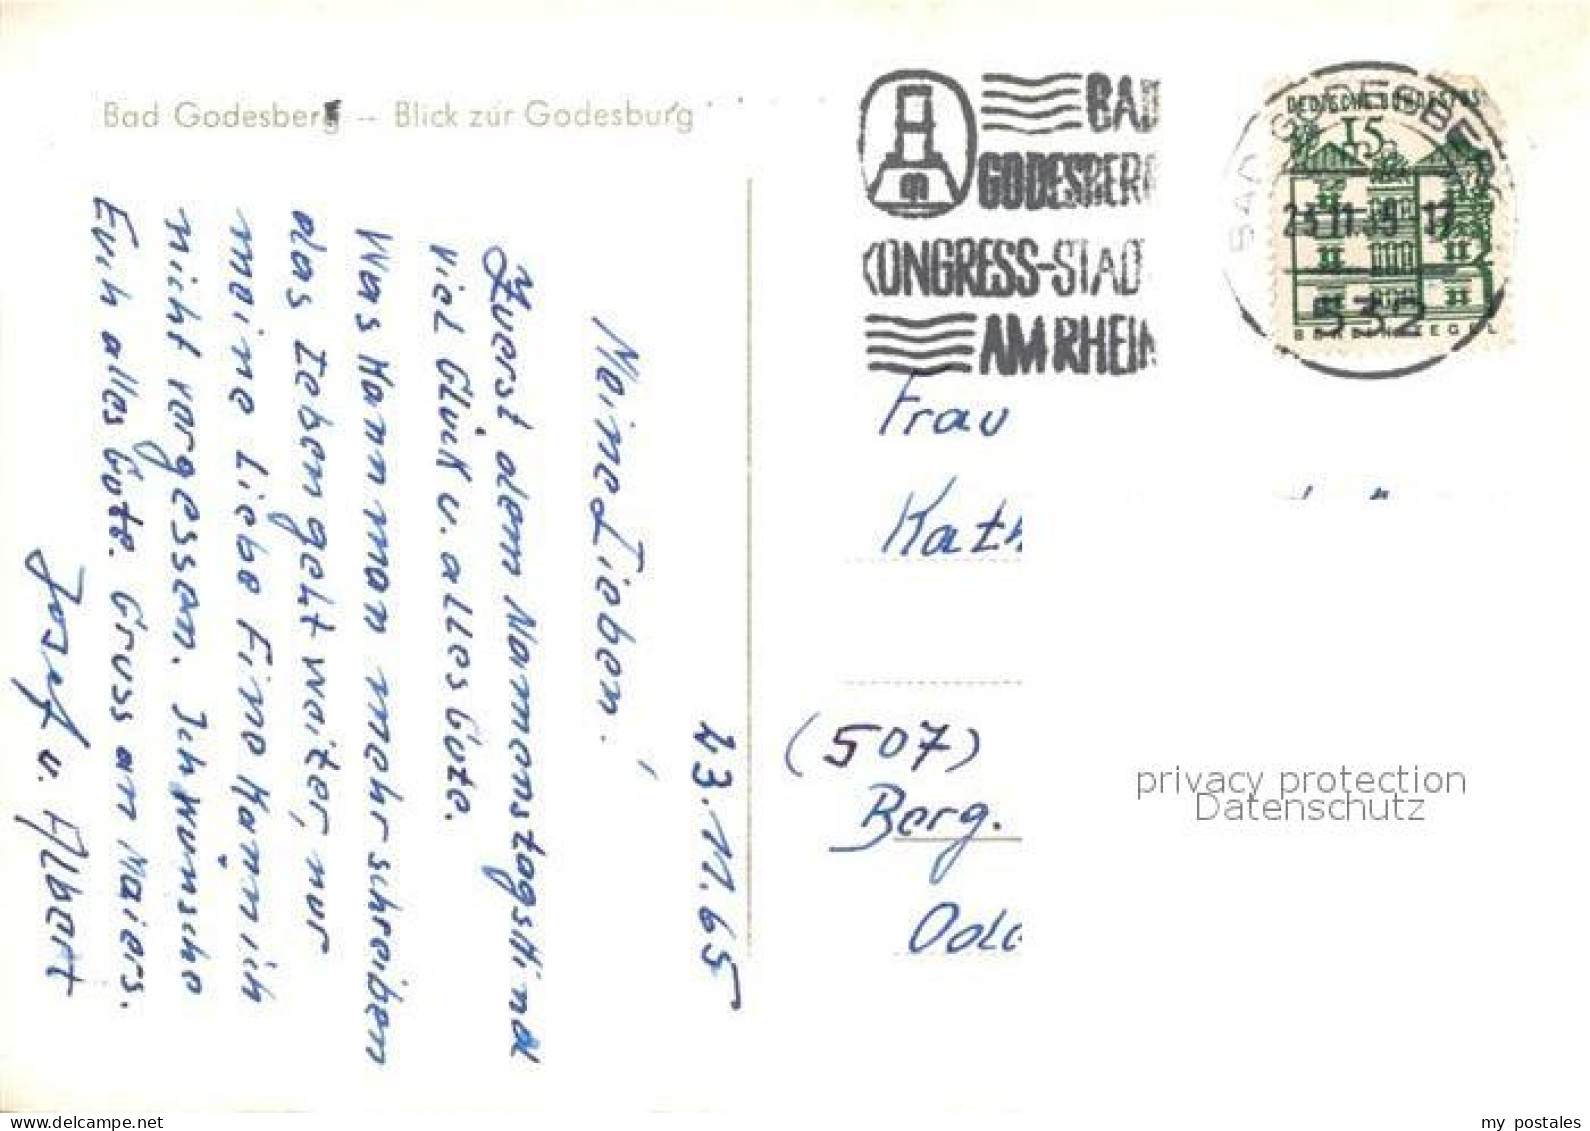 Bad Godesberg -- Blick zur Godesburg
23.11.65
Meine Lieben!
Zuerst dem Namenstagskind
viel Glück u. alles Gute.
Was kann man mehr schreiben
das Leben geht weiter, nur
meine Liebe Fine kann ich
nicht vergessen. Ich wünsche
Euch alles Gute. Gruss am Maiers.
Josef u. Albert
BAD
GODESBERG
KONGRESS-STADT
AM RHEIN
BAD GODESBERG
23.11.65-17
532
DEUTSCHE BUNDESPOST
15
BERLIN TEGEL
Frau
Kath
(507)
Berg.
Ode
privacy protection
Datenschutz
my postales